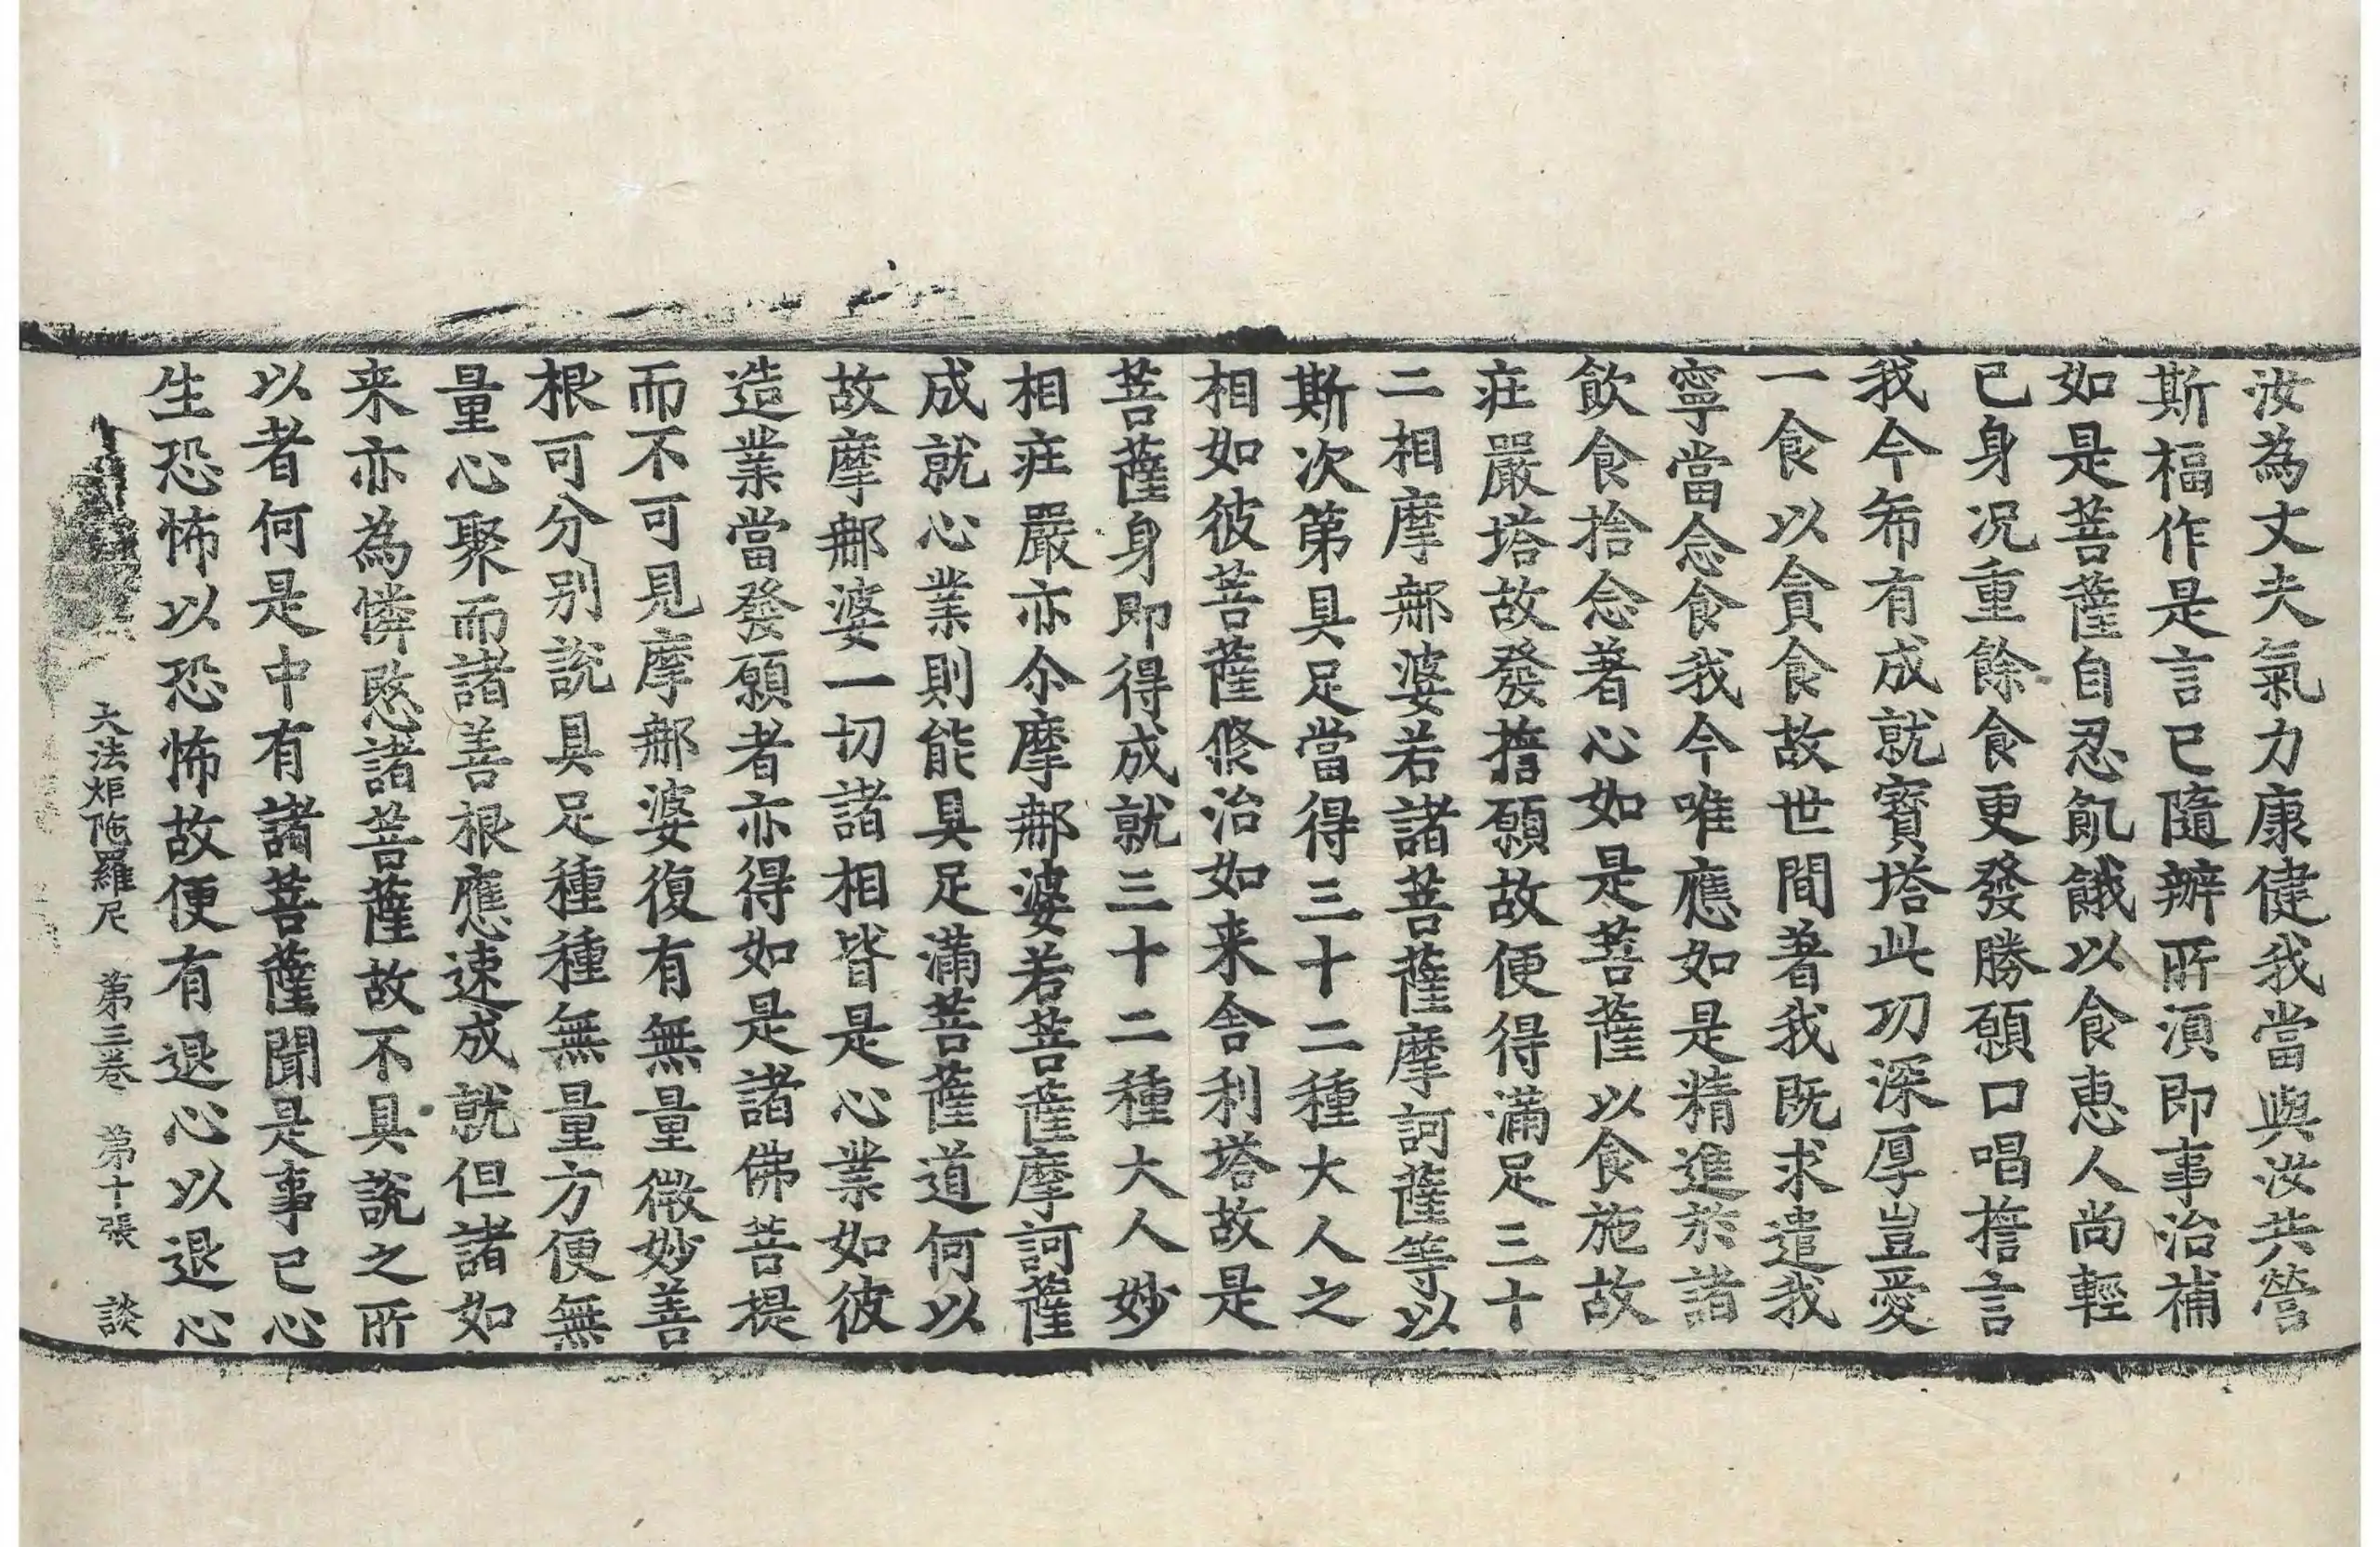 汝為丈夫氣力康健我當與汝共營
斯福作是言已隨辦所須即事治補
如是菩薩自忍飢餓以食惠人尚輕
已身况重餘食更發勝願口唱擔言
我今布有成就寳塔此功深厚豈愛
一食以貪食故世間著我既求遣我
寧當念食我今唯應如是精進於諸
飲食捨念著心如是菩薩以食施故
莊嚴塔故發擔願故便得滿足三十
二相摩𨚗婆若諸菩薩摩訶薩等以
斯次第具足當得三十二種大人之
相如彼菩薩修治如来舍利塔故是
菩薩身即得成就三十二種大人妙
相莊嚴亦尒摩𨚗婆若菩薩摩訶薩
成就心業則能具足滿菩薩道何以
故摩𨚗婆一切諸相皆是心業如彼
造業當發願者亦得如是諸佛菩提
而不可見摩𨚗婆復有無量微妙善
根可分别說具足種種無量方便無
量心聚而諸善根應速成就但諸如
来亦為憐愍諸菩薩故不具說之所
以者何是中有諸菩薩聞是事已心
生恐怖以恐怖故便有退心以退心
大法炬陁羅尼 第三卷 第十張 談